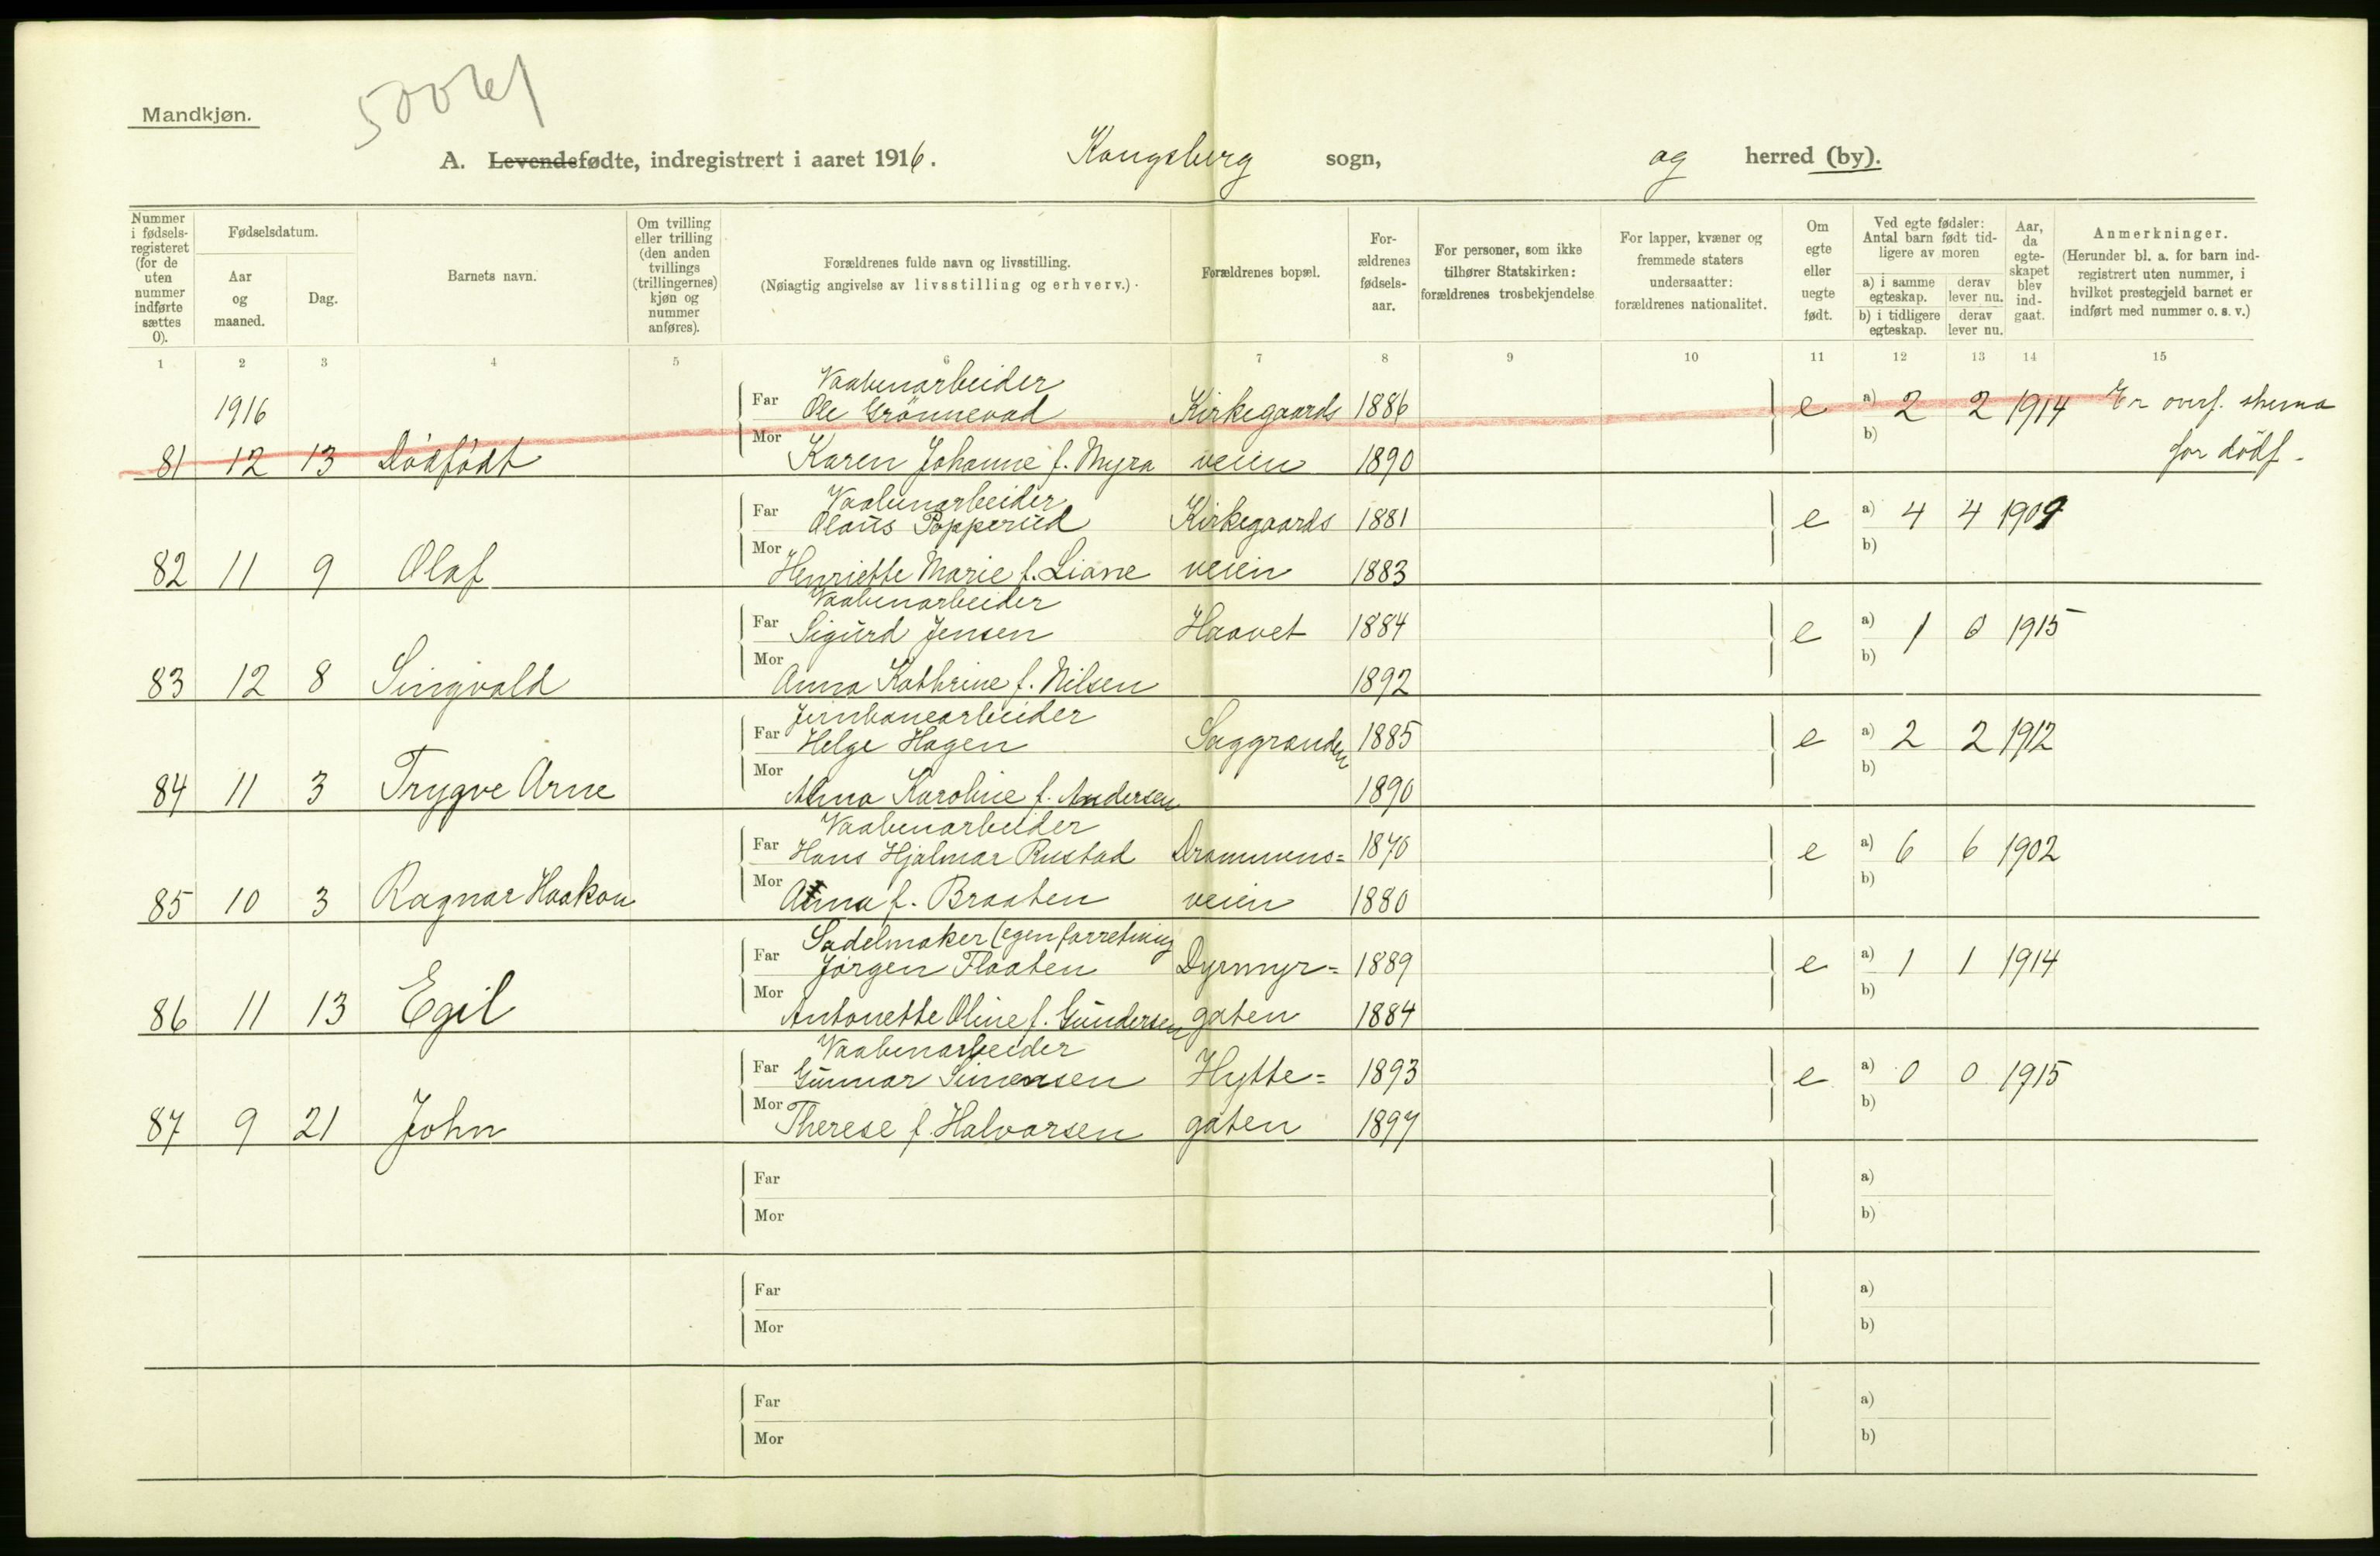 Mandkjøn.
A. Levendefødte, indregistrert i aaret 1916. Kongsberg sogn, og herred (by).
Nummer i fødsels-registeret (for de uten nummer indførte sættes 0).
Fødselsdatum.
Aar og maaned.
Dag.
Barnets navn.
Om tvilling eller trilling (den anden tvillings (trillingernes) kjøn og nummer anføres).
Forældrenes fulde navn og livsstilling.
(Nøiagtig angivelse av livsstilling og erhverv.)
Forældrenes bopæl.
For-ældrenes fødsels-aar.
For personer, som ikke tilhører Statskirken: forældrenes trosbekjendelse
For lapper, kvæner og fremmede staters undersaatter: forældrenes nationalitet.
Om egte eller uegte født.
Ved egte fødsler: Antal barn født tid-ligere av moren
a) i samme egteskap. derav lever nu.
b) i tidligere egteskap. derav lever nu.
Aar, da egte-skapet blev ind-gaat.
Anmerkninger.
(Herunder bl. a. for barn ind-registrert uten nummer, i hvilket prestegjeld barnet er indført med nummer o. s. v.)
1 2 3 4 5 6 7 8 9 10 11 12 13 14 15
Vaabenarbeider
1916 Far Ole Grönnevad Kirkegaards 1886 e a) 2 2 1914 Er overf. skema
b)
81 12 13 Dödfödt Mor Karen Johanne f. Myra veien 1890 for dödf.
Vaabenarbeider
Far Olaus Popperud Kirkegaards 1881 e a) 4 4 1909
b)
82 11 9 Olaf Mor Henriette Marie f. Liane veien 1883
Vaabenarbeider
Far Sigurd Jensen Haavet 1884 e a) 1 0 1915
b)
83 12 8 Singvald Mor Anna Kathrine f. Nilsen 1892
Jernbanearbeider
Far Helge Hagen Saggranden 1885 e a) 2 2 1912
b)
84 11 3 Trygve Arne Mor Karoline f. Andersen 1890
Vaabenarbeider
Far Hans Hjalmar Rustad Drammens= 1870 e a) 6 6 1902
b)
85 10 3 Ragnar Haakon Mor Anna f. Braaten veien 1880
Sadelmaker (egen forretning
Far Jörgen Flaaten Dyrmyr= 1889 e a) 1 1 1914
b)
86 11 13 Egil Mor Antonette Oline f. Gundersen gaten 1884
Vaabenarbeider
Far Gunnar Simensen Hytte= 1893 e a) 0 0 1915
b)
87 9 21 John Mor Therese f. Halvorsen gaten 1897
Far a)
Mor b)
Far a)
Mor b)
Far a)
Mor b)